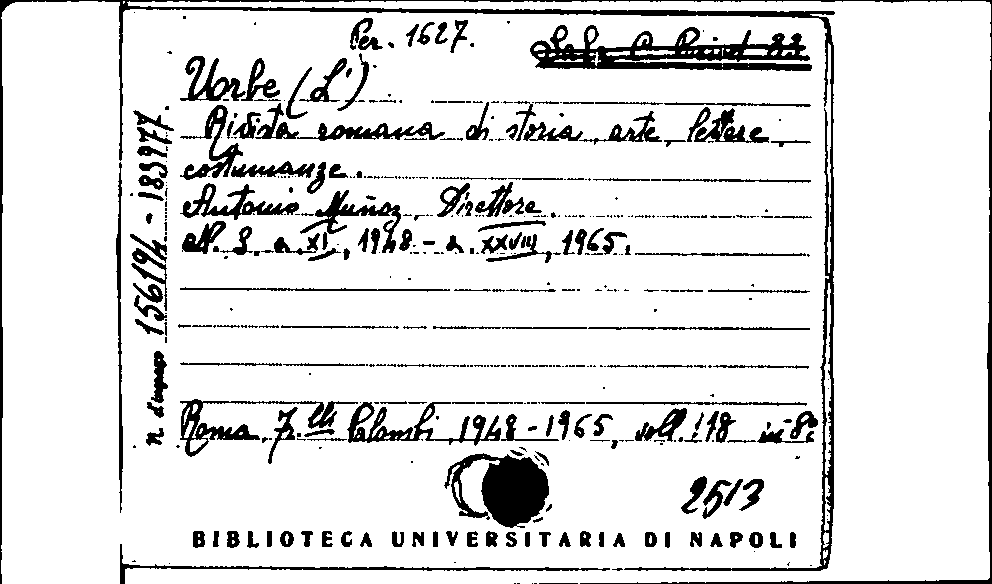 Per. 1627.
Sala C Period 83
Uorbe (L')
Rivista romana di storia, arte, lettere,
costumanze.
Antonio Muñoz, Direttore.
N. S. a. XI, 1948 - a. XXVIII, 1965.
Roma, F.lli Palombi, 1948-1965, voll. 18 in-8º
2513
BIBLIOTECA UNIVERSITARIA DI NAPOLI
n. d'ingresso 156194 - 183977.